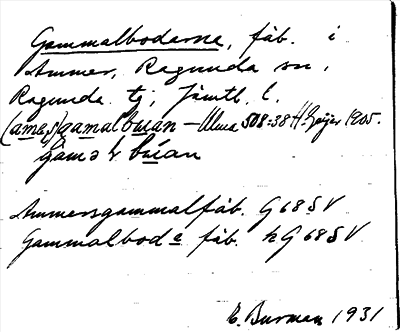 Gammalboderne, fäb. i
Ammer, Ragunda sn,
Ragunda tj, Jämtl. l.
(ames)gamalbuan – Ulma 508:38 H. Geijer 1905.
gaməl buan
Ammersgammalfäb. G 68 SV
Gammalbode fäb. hG 68 SV
E. Burman 1931